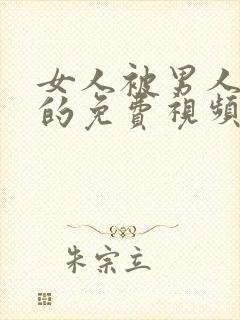 女人被男人
的免費視頻
朱宗立